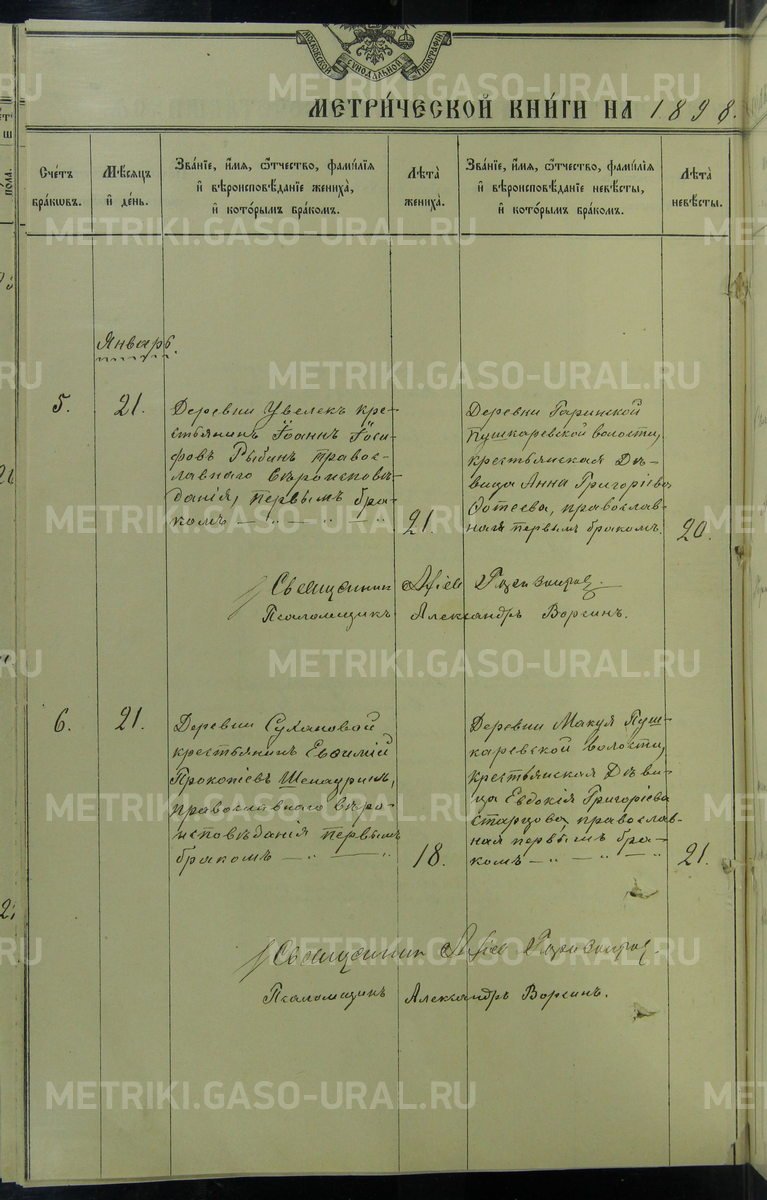 МОСКОВСКОЙ СѴНОДАЛЬНОЙ ТИПОГРАФІИ
METRIKI.GASO-URAL.RU
МЕТРИ́ЧЕСКОЙ КНИ́ГИ НА 1898.
Сче́тъ бра́кѡвъ.
Мѣ́сѧцъ и҆ де́нь.
Зва́нїе, и҆́мѧ, ѻ҆́тчество, фамі́лїѧ
и҆ вѣроисповѣ́данїе жениха̀,
и҆ кото́рымъ бра́комъ.
Лѣ́та жениха̀.
Зва́нїе, и҆́мѧ, ѻ҆́тчество, фамі́лїѧ
и҆ вѣроисповѣ́данїе невѣ́сты,
и҆ кото́рымъ бра́комъ.
Лѣ́та невѣ́сты.
Январь.
5.
21.
Деревни Увелекъ кре-
стьянинъ Іоаннъ Іоси-
фовъ Рыбинъ правос-
лавнаго вѣроисповѣ-
данія, первымъ бра-
комъ — „ — „ — „ —
21.
Деревни Гаринской
Пушкаревской волости,
крестьянская дѣ-
вица Анна Григоріева
православ-
ная первымъ бракомъ.
20.
Священник
Псаломщикъ Александръ Ворсинъ.
6.
21.
Деревни Сулановой
крестьянинъ Евѳимій
Прокопіевъ
православнаго вѣро-
исповѣданія первымъ
бракомъ — „ — „
18.
Деревни Макуя Пуш-
каревской волости,
крестьянская дѣви-
ца Евдокія Григоріева
Старцова, православ-
ная первымъ бра-
комъ — „ — „ — „
21.
Священник
Псаломщикъ Александръ Ворсинъ.